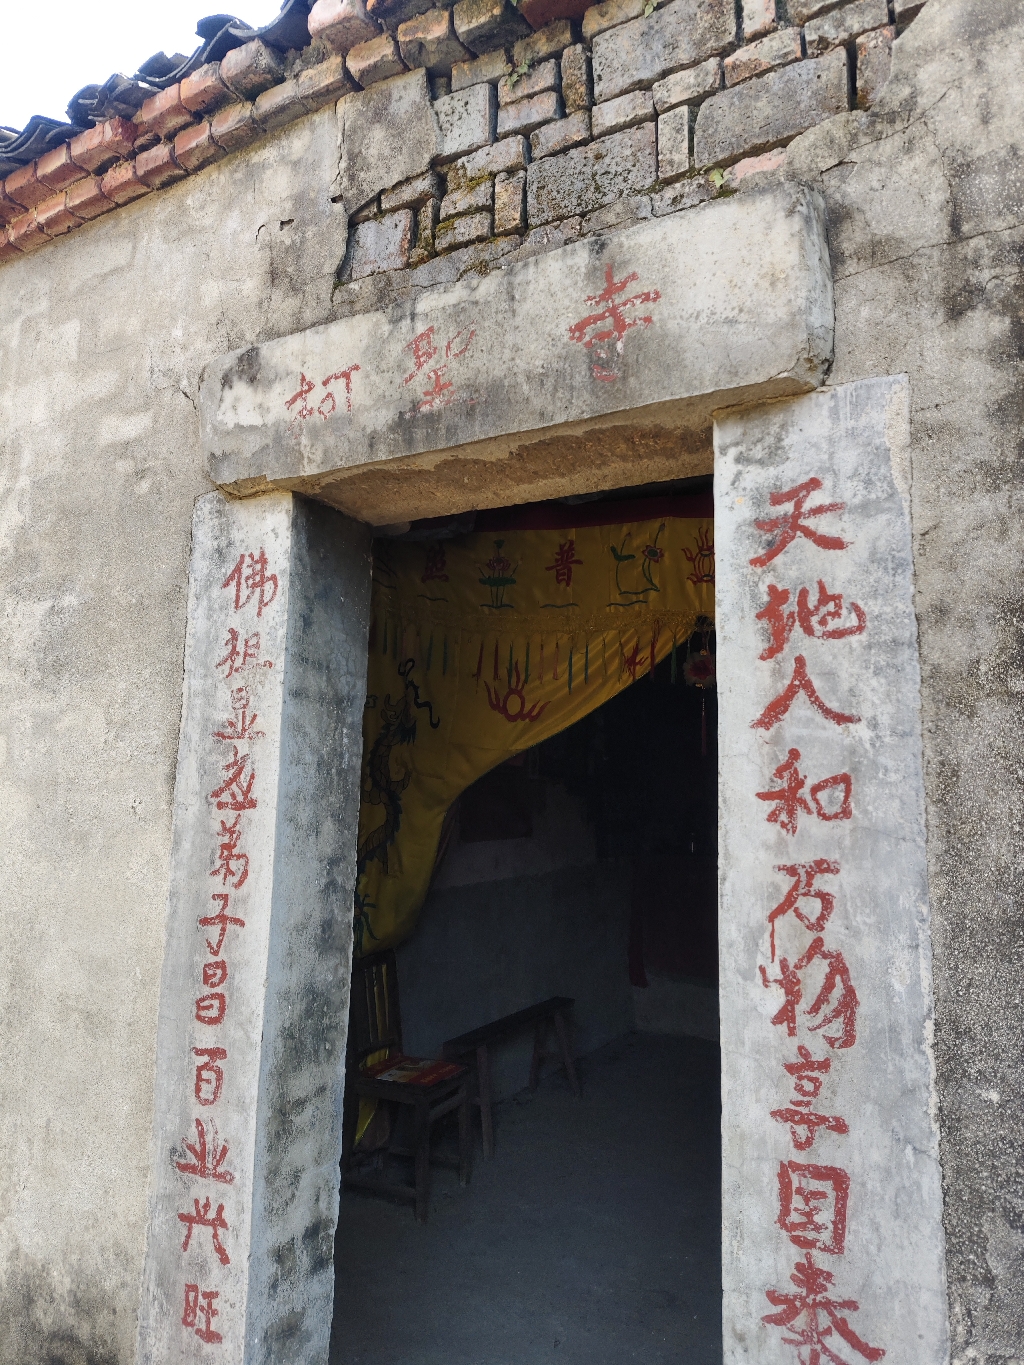 柯聖寺
天地人和万物享国泰
佛祖显应弟子昌百业兴旺
普照